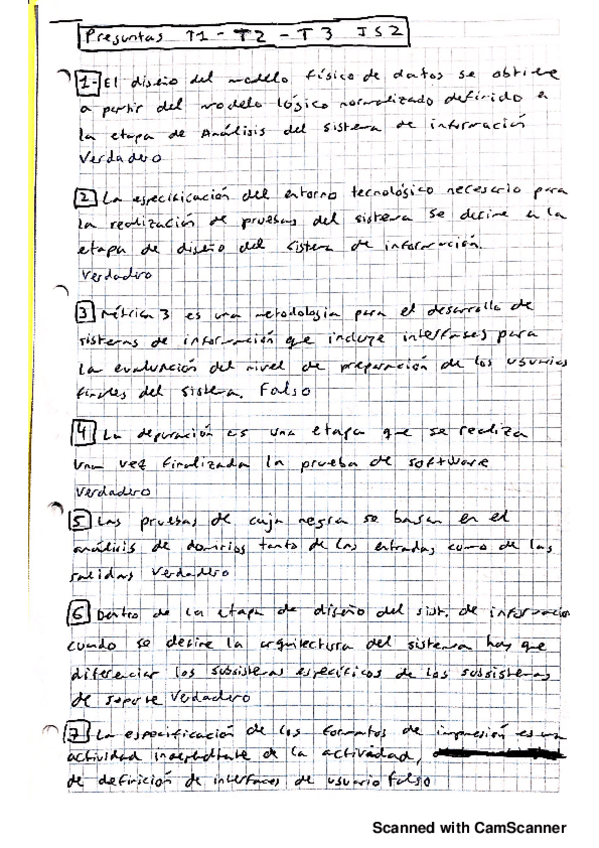 Preguntas T1 - T2 - T3 IS2
1- El diseño del modelo físico de datos se obtiene
a partir del modelo lógico normalizado definido en
la etapa de Análisis del sistema de información
Verdadero
2 La especificación del entorno tecnológico necesario para
la realización de pruebas del sistema se define en la
etapa de diseño del sistema de información.
Verdadero
3 Métrica 3 es una metodología para el desarrollo de
sistemas de información que incluye interfases para
la evaluación del nivel de preparación de los usuarios
finales del sistema. Falso
4 La depuración es una etapa que se realiza
una vez finalizada la prueba de software
Verdadero
5 Las pruebas de caja negra se basan en el
análisis de dominios tanto de las entradas como de las
salidas Verdadero
6 Dentro de la etapa de diseño del sist. de información
cuando se define la arquitectura del sistema hay que
diferenciar los subsistemas específicos de los subsistemas
de soporte Verdadero
7 La especificación de los formatos de impresión es una
actividad independiente de la actividad,
de definición de interfaces de usuario falso
Scanned with CamScanner